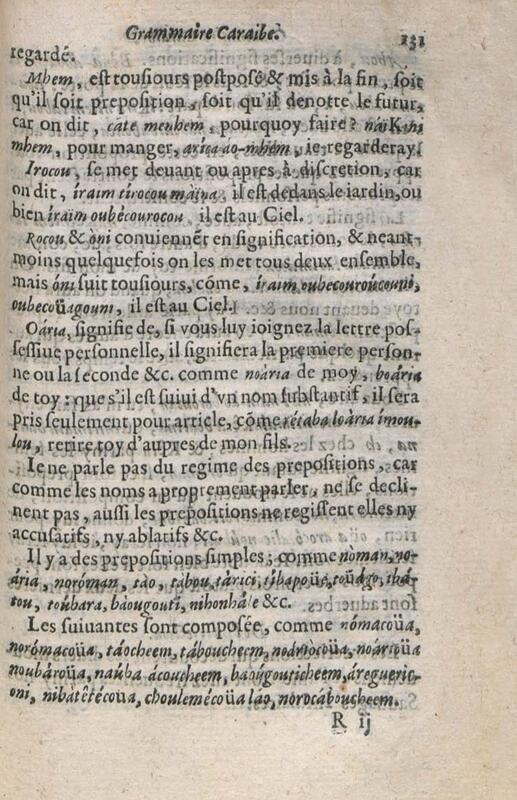 Grammaire Caraibe.
131
regardé.
Mhem, est tousiours postposé & mis à la fin, soit
qu'il soit preposition, soit qu'il denotte le futur,
car on dit, càte menhem, pourquoy faire?
mhem, pour manger, aríca ao-mhém, ie regarderay.
Irocou, se met deuant ou apres à discretion, car
on dit, íraim tírocou màina, il est dedans le iardin, ou
bien íraim oubécourocou, il est au Ciel.
Rocou & òni conuiennẽt en signification, & neant-
moins quelquefois on les met tous deux ensemble,
mais óni suit tousiours, cóme, íraim oubecouroúcouni,
oubecoüagouni, il est au Ciel.
Oária, signifie de, si vous luy ioignez la lettre pos-
sessiue personnelle, il signifiera la premiere person-
ne ou la seconde &c. comme noària de moy, boária
de toy : que s'il est suiui d'vn nom substantif, il sera
pris seulement pour article, cóme rétaba loària imou-
lou, retire toy d'aupres de mon fils.
Ie ne parle pas du regime des prepositions, car
comme les noms a proprement parler, ne se decli-
nent pas, aussi les prepositions ne regissent elles ny
accusatifs, ny ablatifs &c.
Il y a des prepositions simples; comme nòman, no-
ária, noróman, táo, tábou, tárici, tíbapoüe, toúàgo, ibá-
tou, toúbara, bàougouti, nihonhále &c.
Les suiuantes sont composée, comme nómacoüa,
norómacoüa, táocheem, táboucheem, noáriocoüa, noáricüa
noubároüa, naúba àcoucheem, baoúgouticheem, áregueric-
oni, nibatétécoüa, choulemécoüa láo, norocáboucheem.
R ij